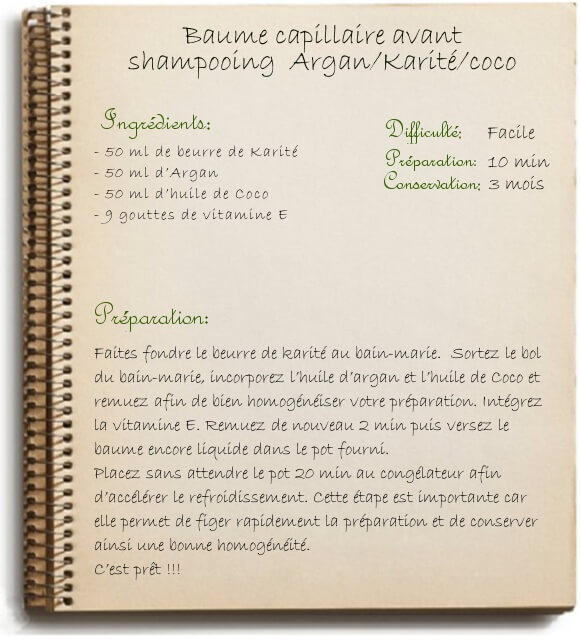 Baume capillaire avant
shampooing Argan/Karité/coco
Ingrédients:
- 50 ml de beurre de Karité
- 50 ml d'Argan
- 50 ml d'huile de Coco
- 9 gouttes de vitamine E
Difficulté: Facile
Préparation: 10 min
Conservation: 3 mois
Préparation:
Faites fondre le beurre de karité au bain-marie. Sortez le bol
du bain-marie, incorporez l'huile d'argan et l'huile de Coco et
remuez afin de bien homogénéiser votre préparation. Intégrez
la vitamine E. Remuez de nouveau 2 min puis versez le
baume encore liquide dans le pot fourni.
Placez sans attendre le pot 20 min au congélateur afin
d'accélérer le refroidissement. Cette étape est importante car
elle permet de figer rapidement la préparation et de conserver
ainsi une bonne homogénéité.
C'est prêt !!!